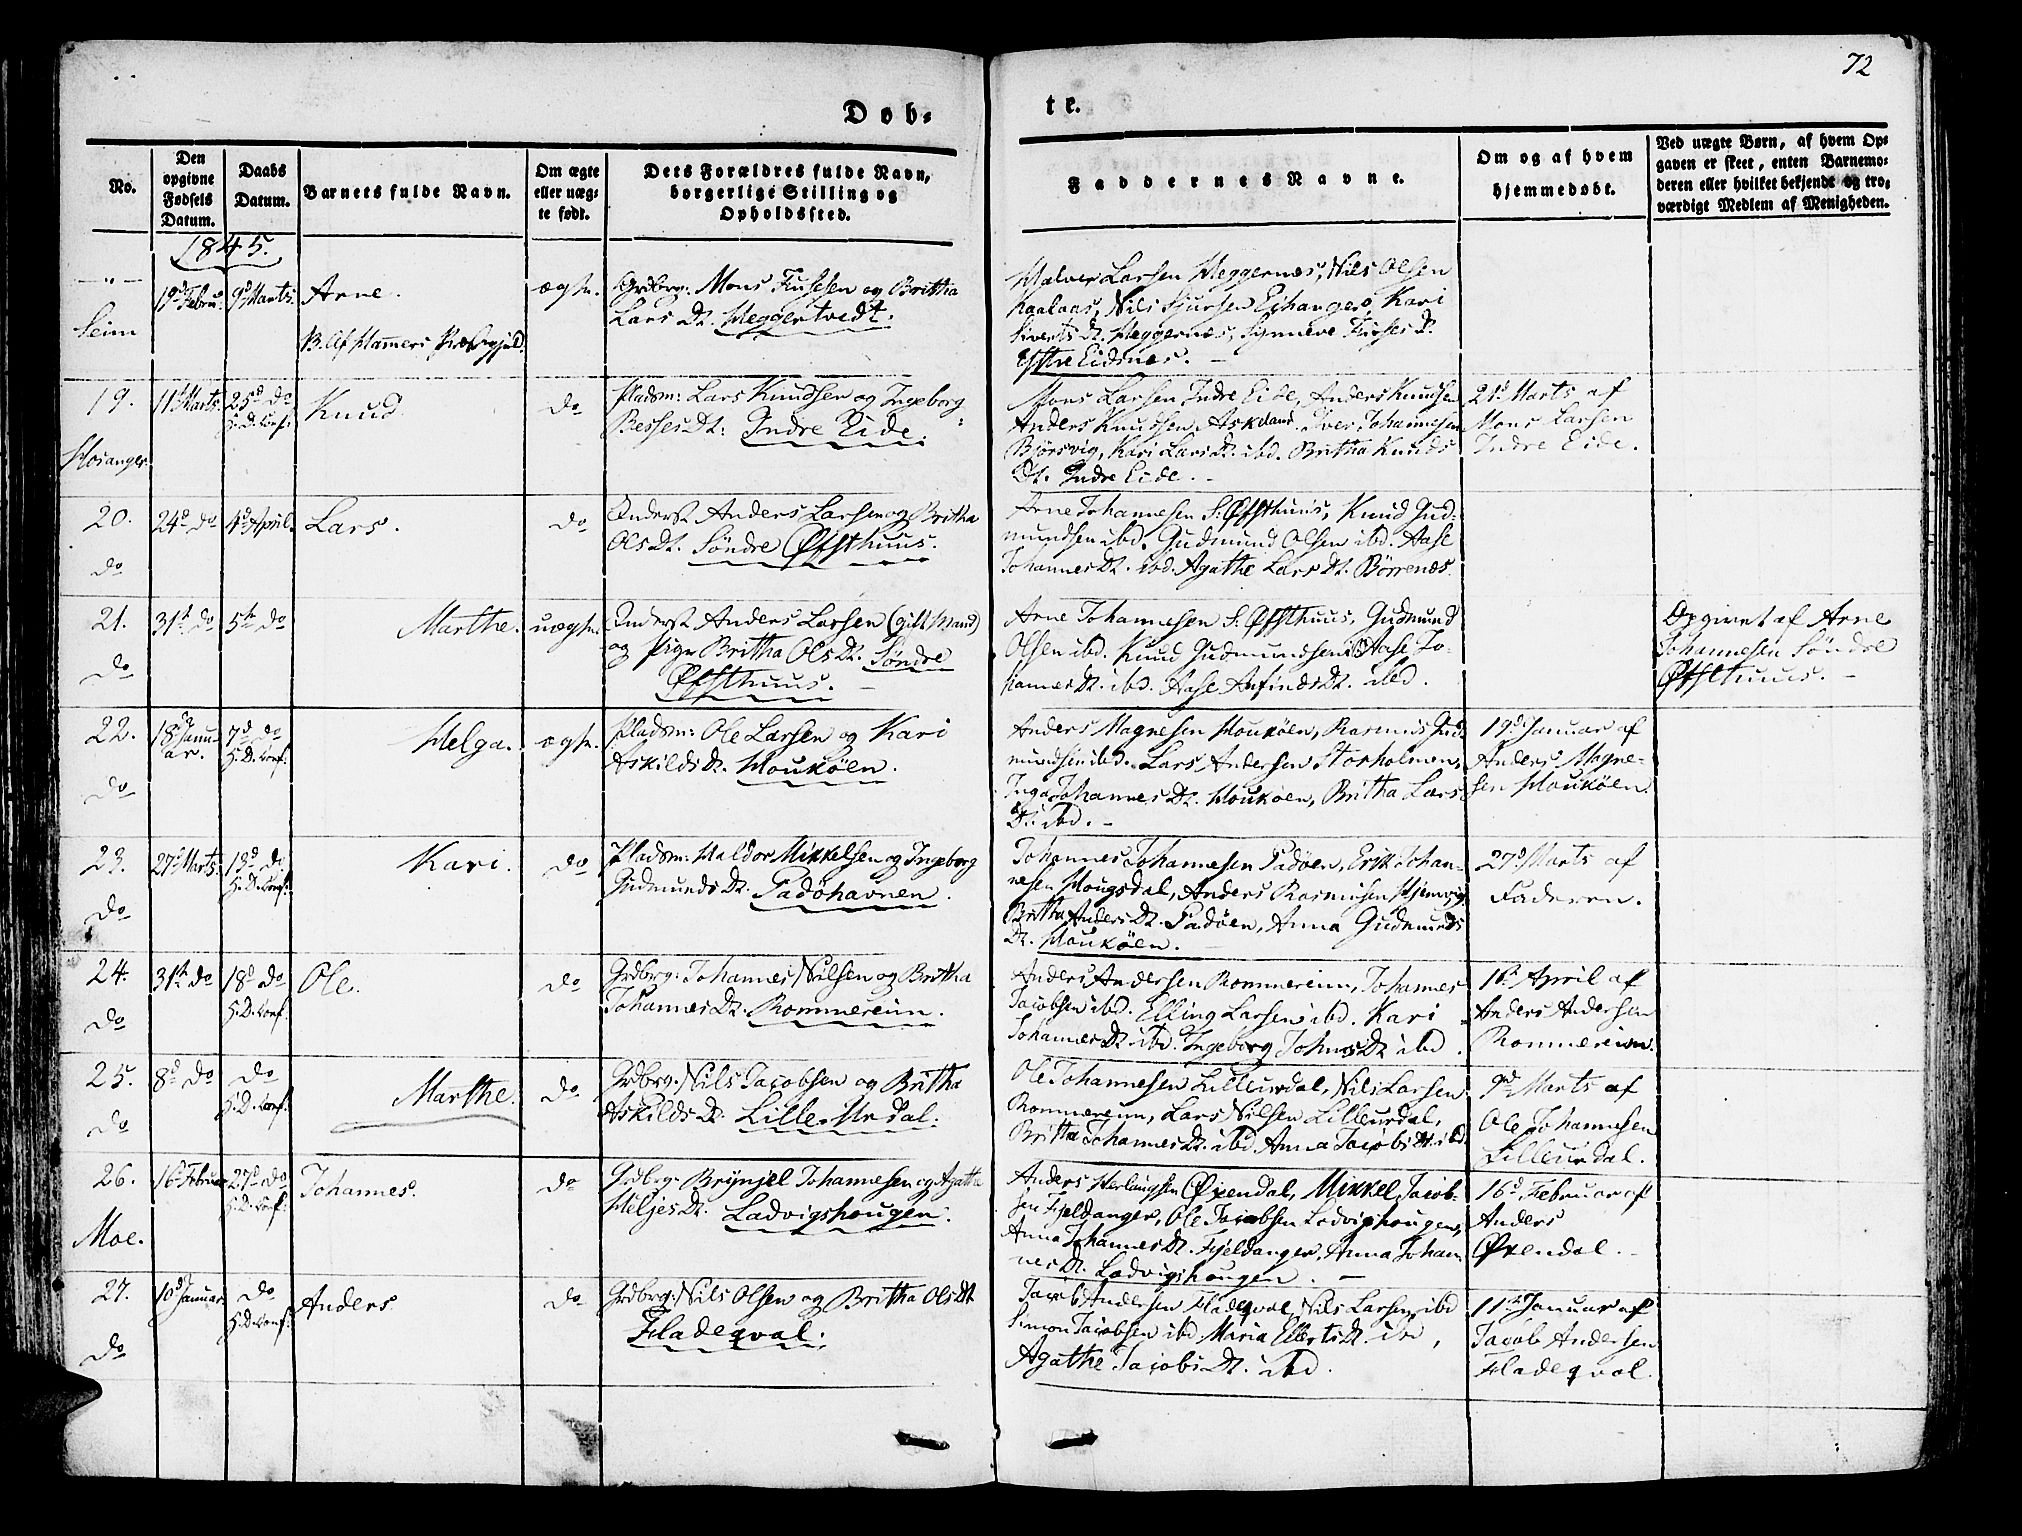 72
Døb-
te.
No.
Den
opgivne
Fødsels
Datum.
Daabs
Datum.
Barnets fulde Navn.
Om ægte
eller uæg-
te født.
Dets Forældres fulde Navn,
borgerlige Stilling og
Opholdssted.
Faddernes Navne.
Om og af hvem
hjemmedøbt.
Ved uægte Børn, af hvem Op-
gaven er skeet, enten Barnemo-
deren eller hvilket bekjendt og tro-
værdigt Medlem af Menigheden.
1845.
- " -
Seim
19d Febru:
9d Marts.
Arne.
B. af Hamers Præstegjeld.
ægte.
Grdbrg: Mons Fusesen og Brittha
Lars Dt. Heggertvedt.
Halvor Larsen Heggernes, Nils Olsen
Kaalaas, Nils Sjursen Eihanger, Kari
Siverts Dt. Heggernes, Synneve Fuses D.
Østre Eidsnes. -
19.
Hosanger.
11t Marts.
25d do
H. D. Conf.
Knud
do
Pladsm: Lars Knudsen og Ingeborg
Besses Dt: Indre Eide.
Mons Larsen Indre Eide, Anders Knudsen
Anders Knudsen Askeland. Iver Johannesen
Björsvig, Kari Lars Dt. ibd. Britha Knuds
Dt. Indre Eide. -
21d Marts af
Mons Larsen
Indre Eide.
20.
do
24d do
4d April.
Lars.
do
Inderst Anders Larsen og Britha
Ols Dt. Söndre Øfsthuus.
Arne Johannesen S. Øfsthuus, Knud Gud-
mundsen ibd. Gudmund Olsen ibd. Aase
Johannes Dt. ibd. Agathe Lars Dt. Börrenes.
21.
do
31te do
5te do
Marthe.
uægte.
Inderst Anders Larsen (gift Mand)
og Pige Britha Ols Dt. Søndre
Øfsthuus. -
Arne Johannesen S. Øfsthuus, Gudmund
Olsen ibd. Knud Gudmundsen, Aase Jo-
hannes Dt. ibd. Aase Anfinds Dt. ibd.
Opgivet af Arne
Johannesen Söndre
Øfsthuus. -
22.
do
18d Janu-
ar.
7d do
H. D. Conf:
Helga.
ægte.
Pladsm: Ole Larsen og Kari
Askilds Dt. Houköen.
Anders Magnesen Houköen, Rasmus Gud-
mundsen ibd. Lars Andersen Storholmen,
Inga Johannes Dt. Houköen, Britha Lars
Dt. ibd. -
19d Januar af
Anders Magne-
sen Houköen.
23.
do
27d Marts.
13d do
H. D. Conf:
Kari.
do
Pladsm: Haldor Mikkelsen og Ingeborg
Gudmunds Dt. Padöhavnen.
Johannes Johannesen Padöen, Erik Johan-
nesen Hougsdal, Anders Rasmusen Hjemvig
Britha Anders Dt. Padöen, Anna Gudmunds
Dt. Houköen.
27d Marts af
Faderen.
24.
do
31te do
18d do
H. D. Conf:
Ole.
do
Grdbrg: Johannes Nilsen og Britha
Johannes Dt. Rommereim.
Anders Andersen Rommereim, Johannes
Jacobsen ibd. Elling Larsen ibd. Kari
Johannes Dt ibd. Ingeborg Johns Dt ibd.
1te April af
Anders Andersen
Rommereim.
25.
do
8d do
do
H. D. Conf:
Marthe.
do
Grdbrg: Nils Jacobsen og Britha
Askilds D. Lille-Urdal:
Ole Johannesen Lilleurdal, Nils Larsen
Rommereim, Lars Nilsen Lilleurdal,
Britha Johannes Dt. ibd Anna Jacobs Dt. ibd.
9d Marts af
Ole Johannesen
Lilleurdal.
26.
Moe.
16d Februar
27d do
H. D. Conf:
Johannes.
do
Grdbrg: Brynjel Johannesen og Agatha
Heljes Dt. Ladvigshougen.
Anders Herlaugsen Øxendal, Mikkel Jacob-
sen Fjeldanger, Ole Jacobsen Ladvigshougen,
Anna Johannes Dt. Fjeldanger, Anna Johan-
nes Dt. Ladvigshougen. -
16d Februar af
Anders
Øxendal. -
27.
do
10d Januar
do
H. D. Conf:
Anders.
do
Grdbrg: Nils Olsen og Britha Ols Dt
Fladeqval.
Jacob Andersen Fladeqval, Nils Larsen ibd
Simon Jacobsen ibd Maria Ellerts Dt. ibd,
Agathe Jacobs Dt. ibd.
11te Januar af
Jacob Andersen
Fladeqval.